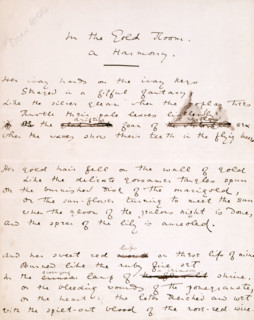 In the Gold Room.
A Harmony.
Her ivory hands on the ivory keys
Strayed in a fitful fantasy
Like the silver gleam when the poplar trees
Rustle their pale leaves listlessly
Or the drifting foam of a restless sea
When the waves show their teeth in the flying breeze
Her gold hair fell on the wall of gold
Like the delicate gossamer tangles spun
On the burnished disk of the marigold,
Or the sun-flower turning to meet the sun
When the gloom of the jealous night is done,
And the spear of the lily is aureoled.
And her sweet red lips on these lips of mine
Burned like the ruby fire set
In the swinging lamp of a crimson shrine,
Or the bleeding wounds of the pomegranate,
Or the heart of the lotus drenched and wet
With the spilt-out blood of the rose-red wine.